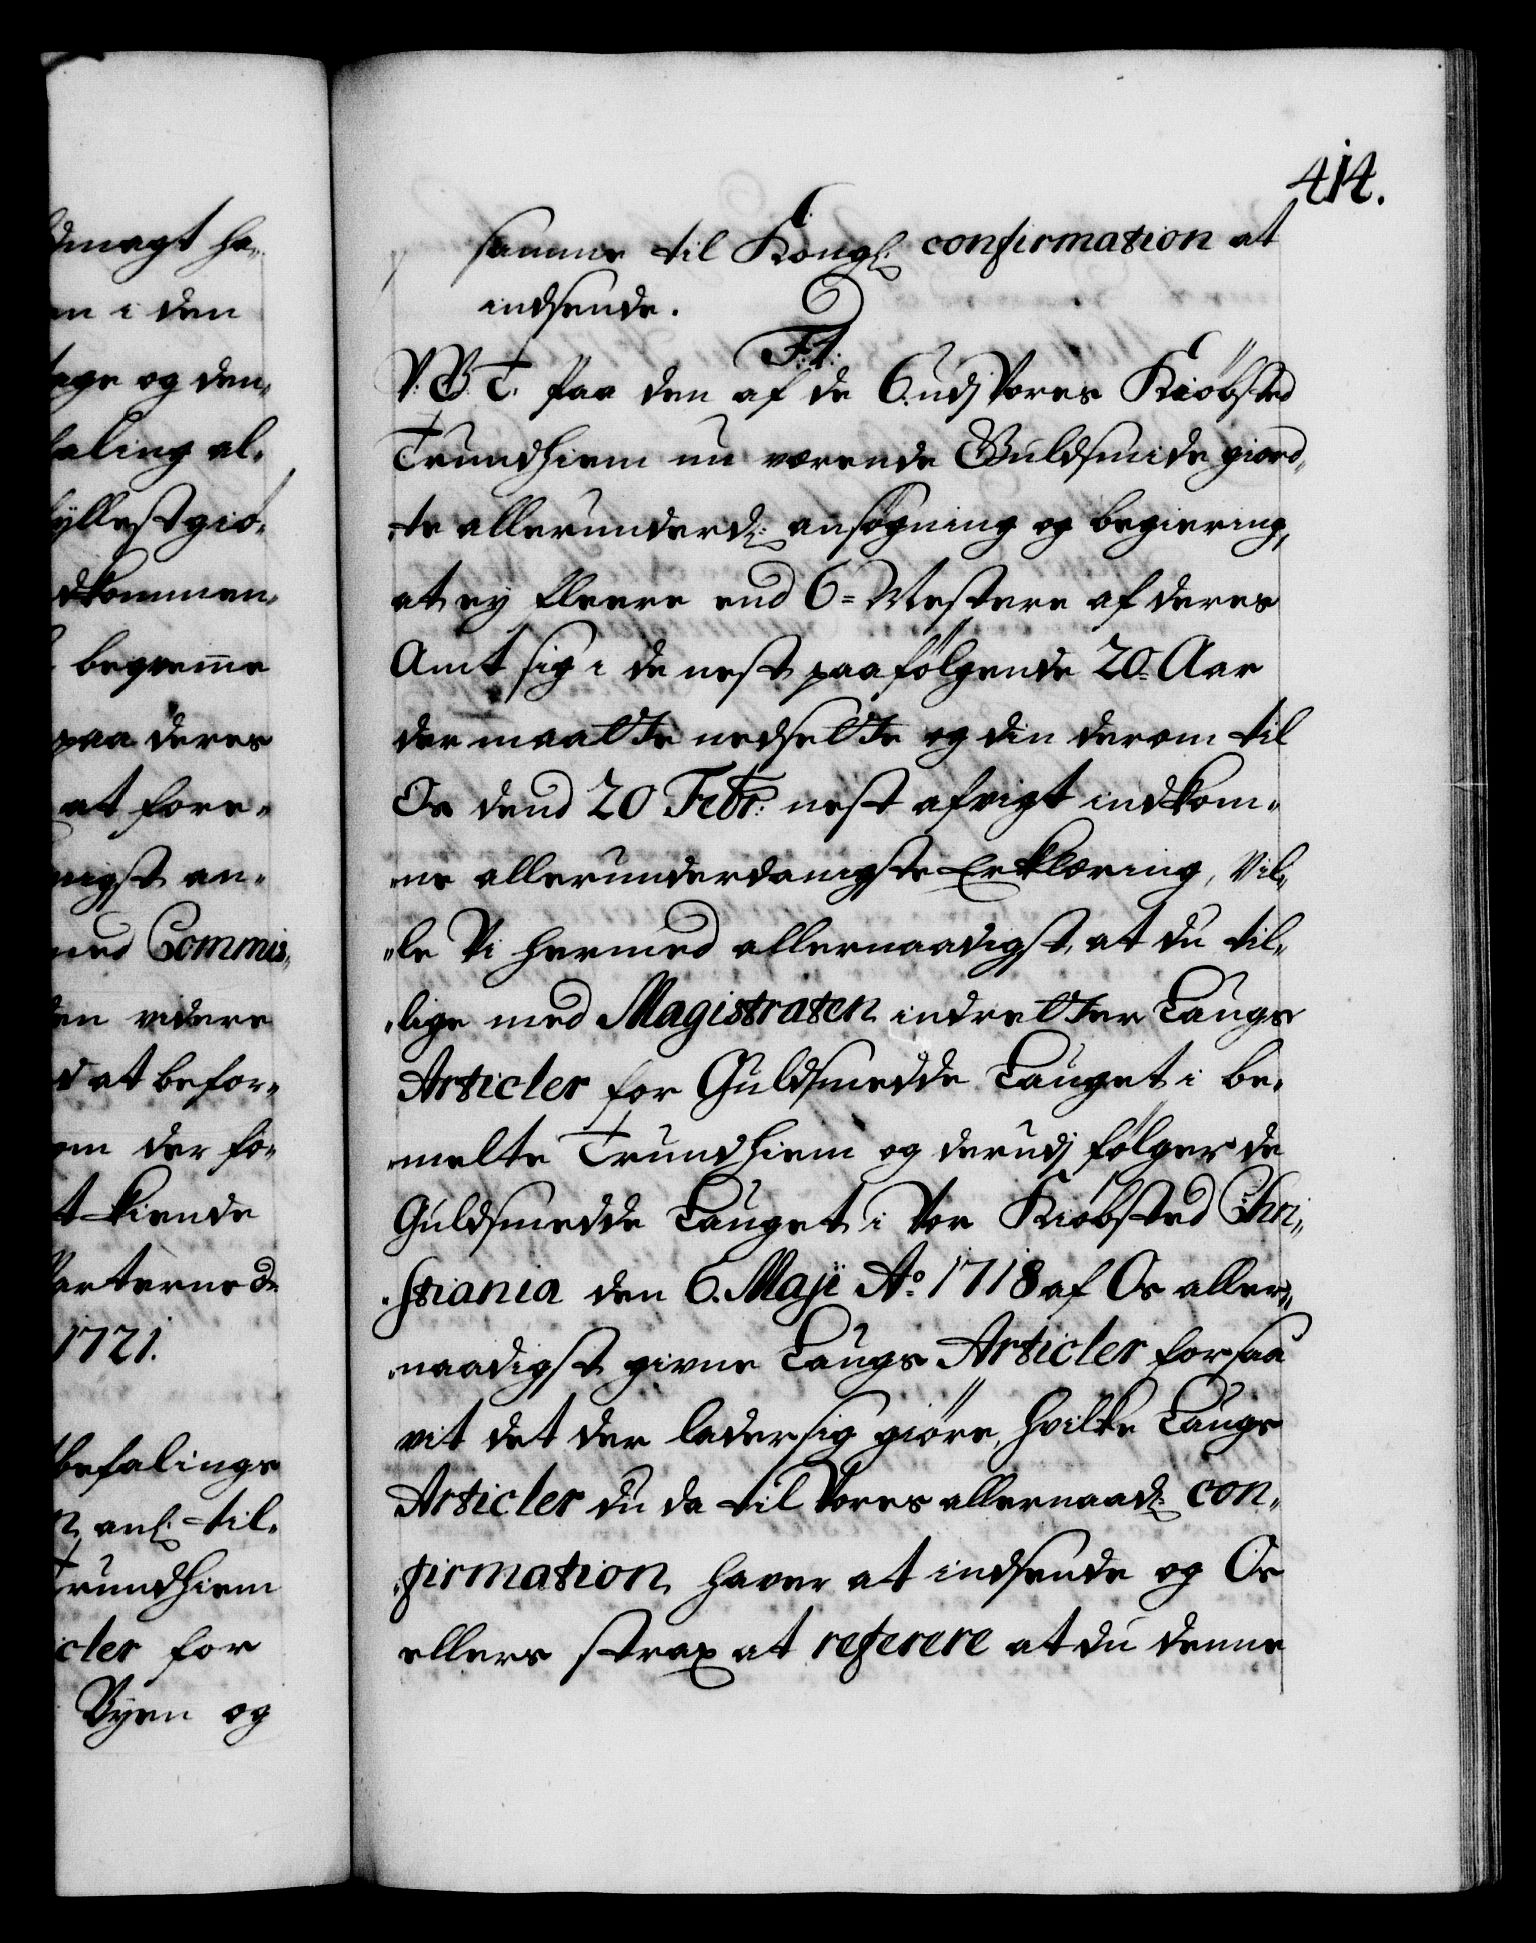 dmagt ha-
en i den
tage og den-
faling al-
fyllest giö-
dkommen-
begveme
paa deres
at fore-
nigst an-
med Commis-
den videre
d at befor-
om der fo-
t kiende
1721.
befalings
anl: til-
Trundhiem
icler for
Byen og
414.
samme til Kongl: confirmation at
indsende.
F. 4.
V. G. T. Paa den af de 6. udj Vores Kiöbsted
Trundhiem nu værende Guldsmide giord-
te allerunderd: ansögning og begiering,
at ey fleere end 6 = Mestere af deres
Amt sig i de nest paafölgende 20. Aar
der maatte nedsette og din derom til
Os dend 20 Febr: nest afvigt indkom-
ne allerunderdanigste Erklæring, Vil-
le Vi hermed allernaadigst, at du til-
lige med Magistraten indretter Laugs
Articler for Guldsmedde Lauget i be-
melte Trundhiem og derudj fölger de
Guldsmedde Lauget i Vor Kiöbsted Chri-
stiania den 6. Maji Ao. 1718 af Os aller-
naadigst givne Laugs Articler forsaa
vit det der lader sig giöre, hvilke Laugs
Articler du da til Vores allernaad: con-
firmation haver at indsende og Os
ellers strax at referere at du denne